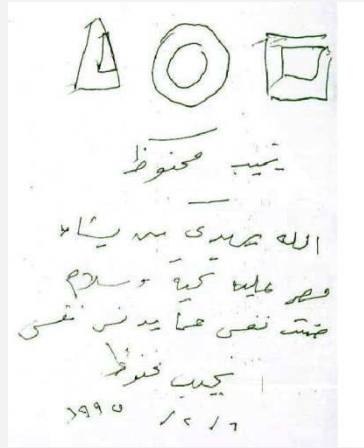 نجيب محفوظ
الله يهدى من يشاء
مصر عليك تحية وسلام
صنت نفسى عما يدنس نفسى
نجيب محفوظ
١٩٩٥ /٢/٦